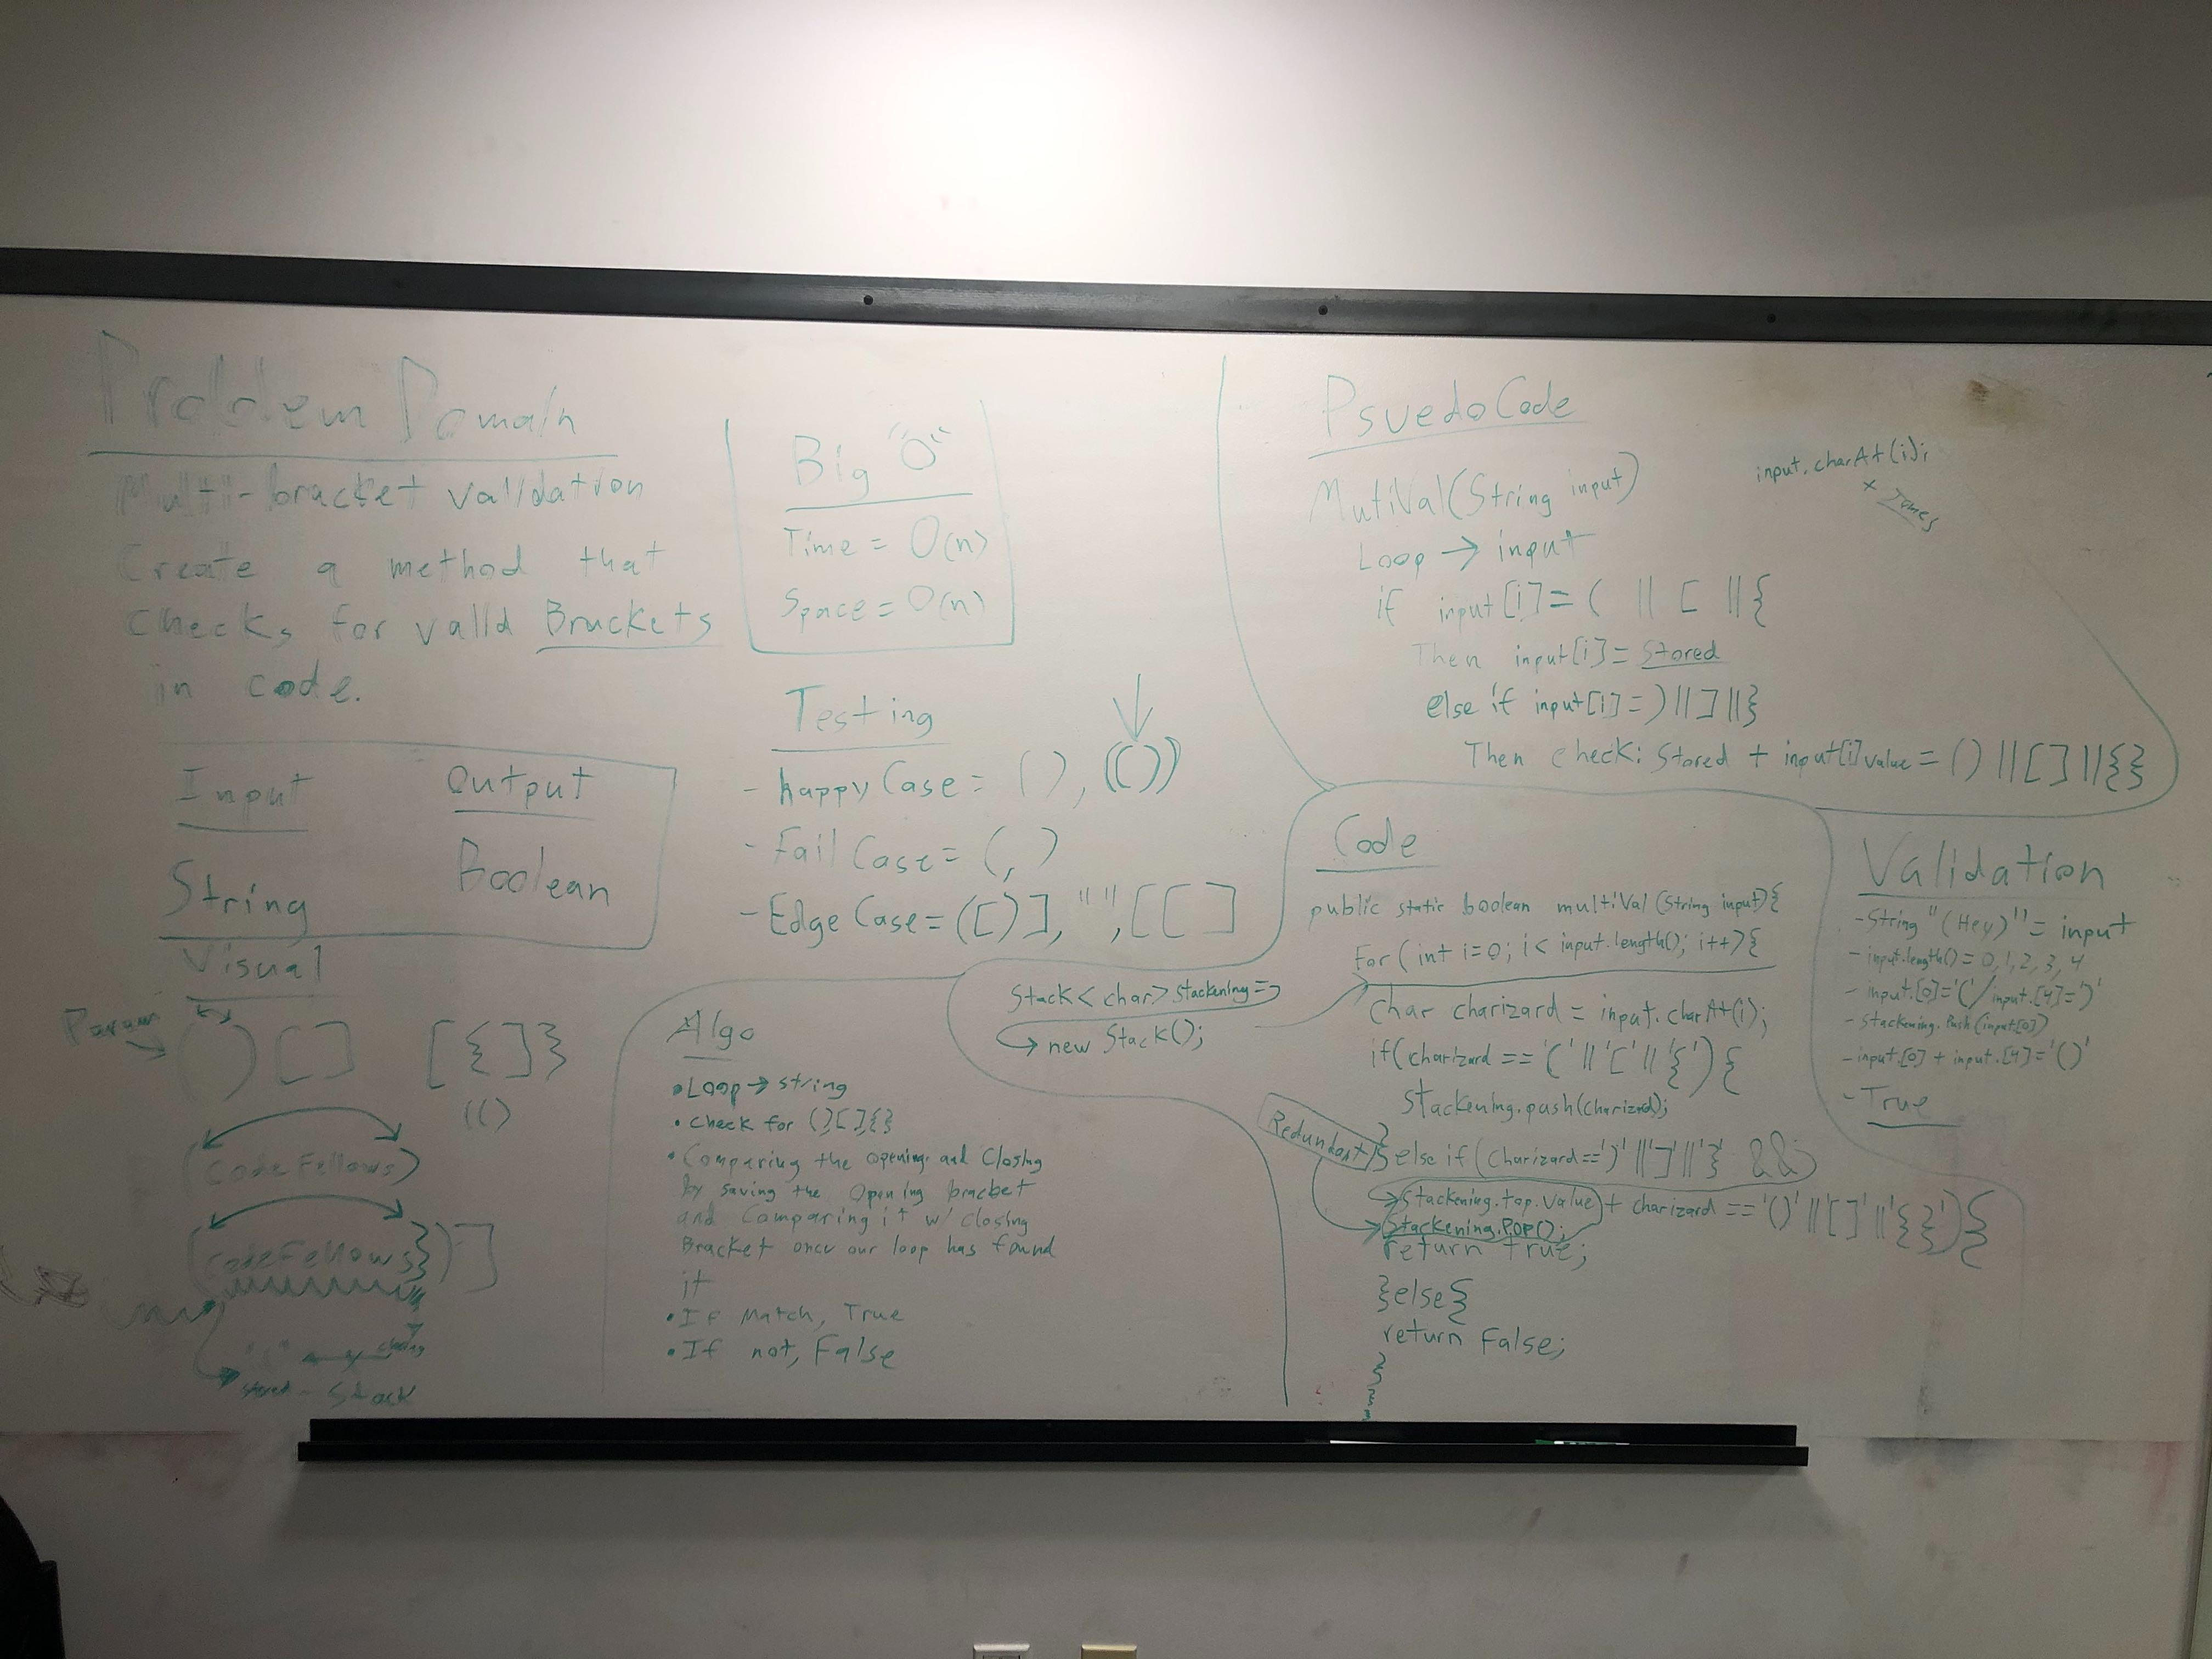 Problem Domain
Multi-bracket validation
Create a method that
checks for valid Brackets
in code.
Input Output
String Boolean
Visual
Param
( ) [ ] [{]}
(()
(CodeFellows)
(CodeFellows})]
closing
stored - Stack
Big "O"
Time = O(n)
Space = O(n)
Testing
- happy Case = ( ), (())
- Fail Case = (, )
- Edge Case = ([)], "", [[]
Algo
• Loop → string
• check for (){}[],{}
• Comparing the opening and Closing
by saving the Opening bracket
and Comparing it w/ closing
Bracket once our loop has found
it
• If Match, True
• If not, False
PsuedoCode
MutiVal(String input)
Loop → input
if input[i] = ( || [ || {
Then input[i] = Stored
else if input[i] = ) || ] || }
Then check: Stored + input[i] value = () || [] || {}
input.charAt(i);
x James
Code
public static boolean multiVal (String input){
For (int i=0; i < input.length(); i++){
Stack<char> Stackening =
new Stack();
Char charizard = input.charAt(i);
if(charizard == '(' || '[' || '{'){
Stackening.push(charizard);
Redundant
}else if (charizard == ')' || ']' || '}' &&
Stackening.top.value + charizard == '()' || '[]' || '{}'){
Stackening.POP();
return true;
}else{
return False;
}
}
}
Validation
- String "(Hey)" = input
- input.length() = 0, 1, 2, 3, 4
- input.[0]='(' / input.[4]=')'
- Stackening.Push(input[0])
- input.[0] + input.[4]='()'
- True